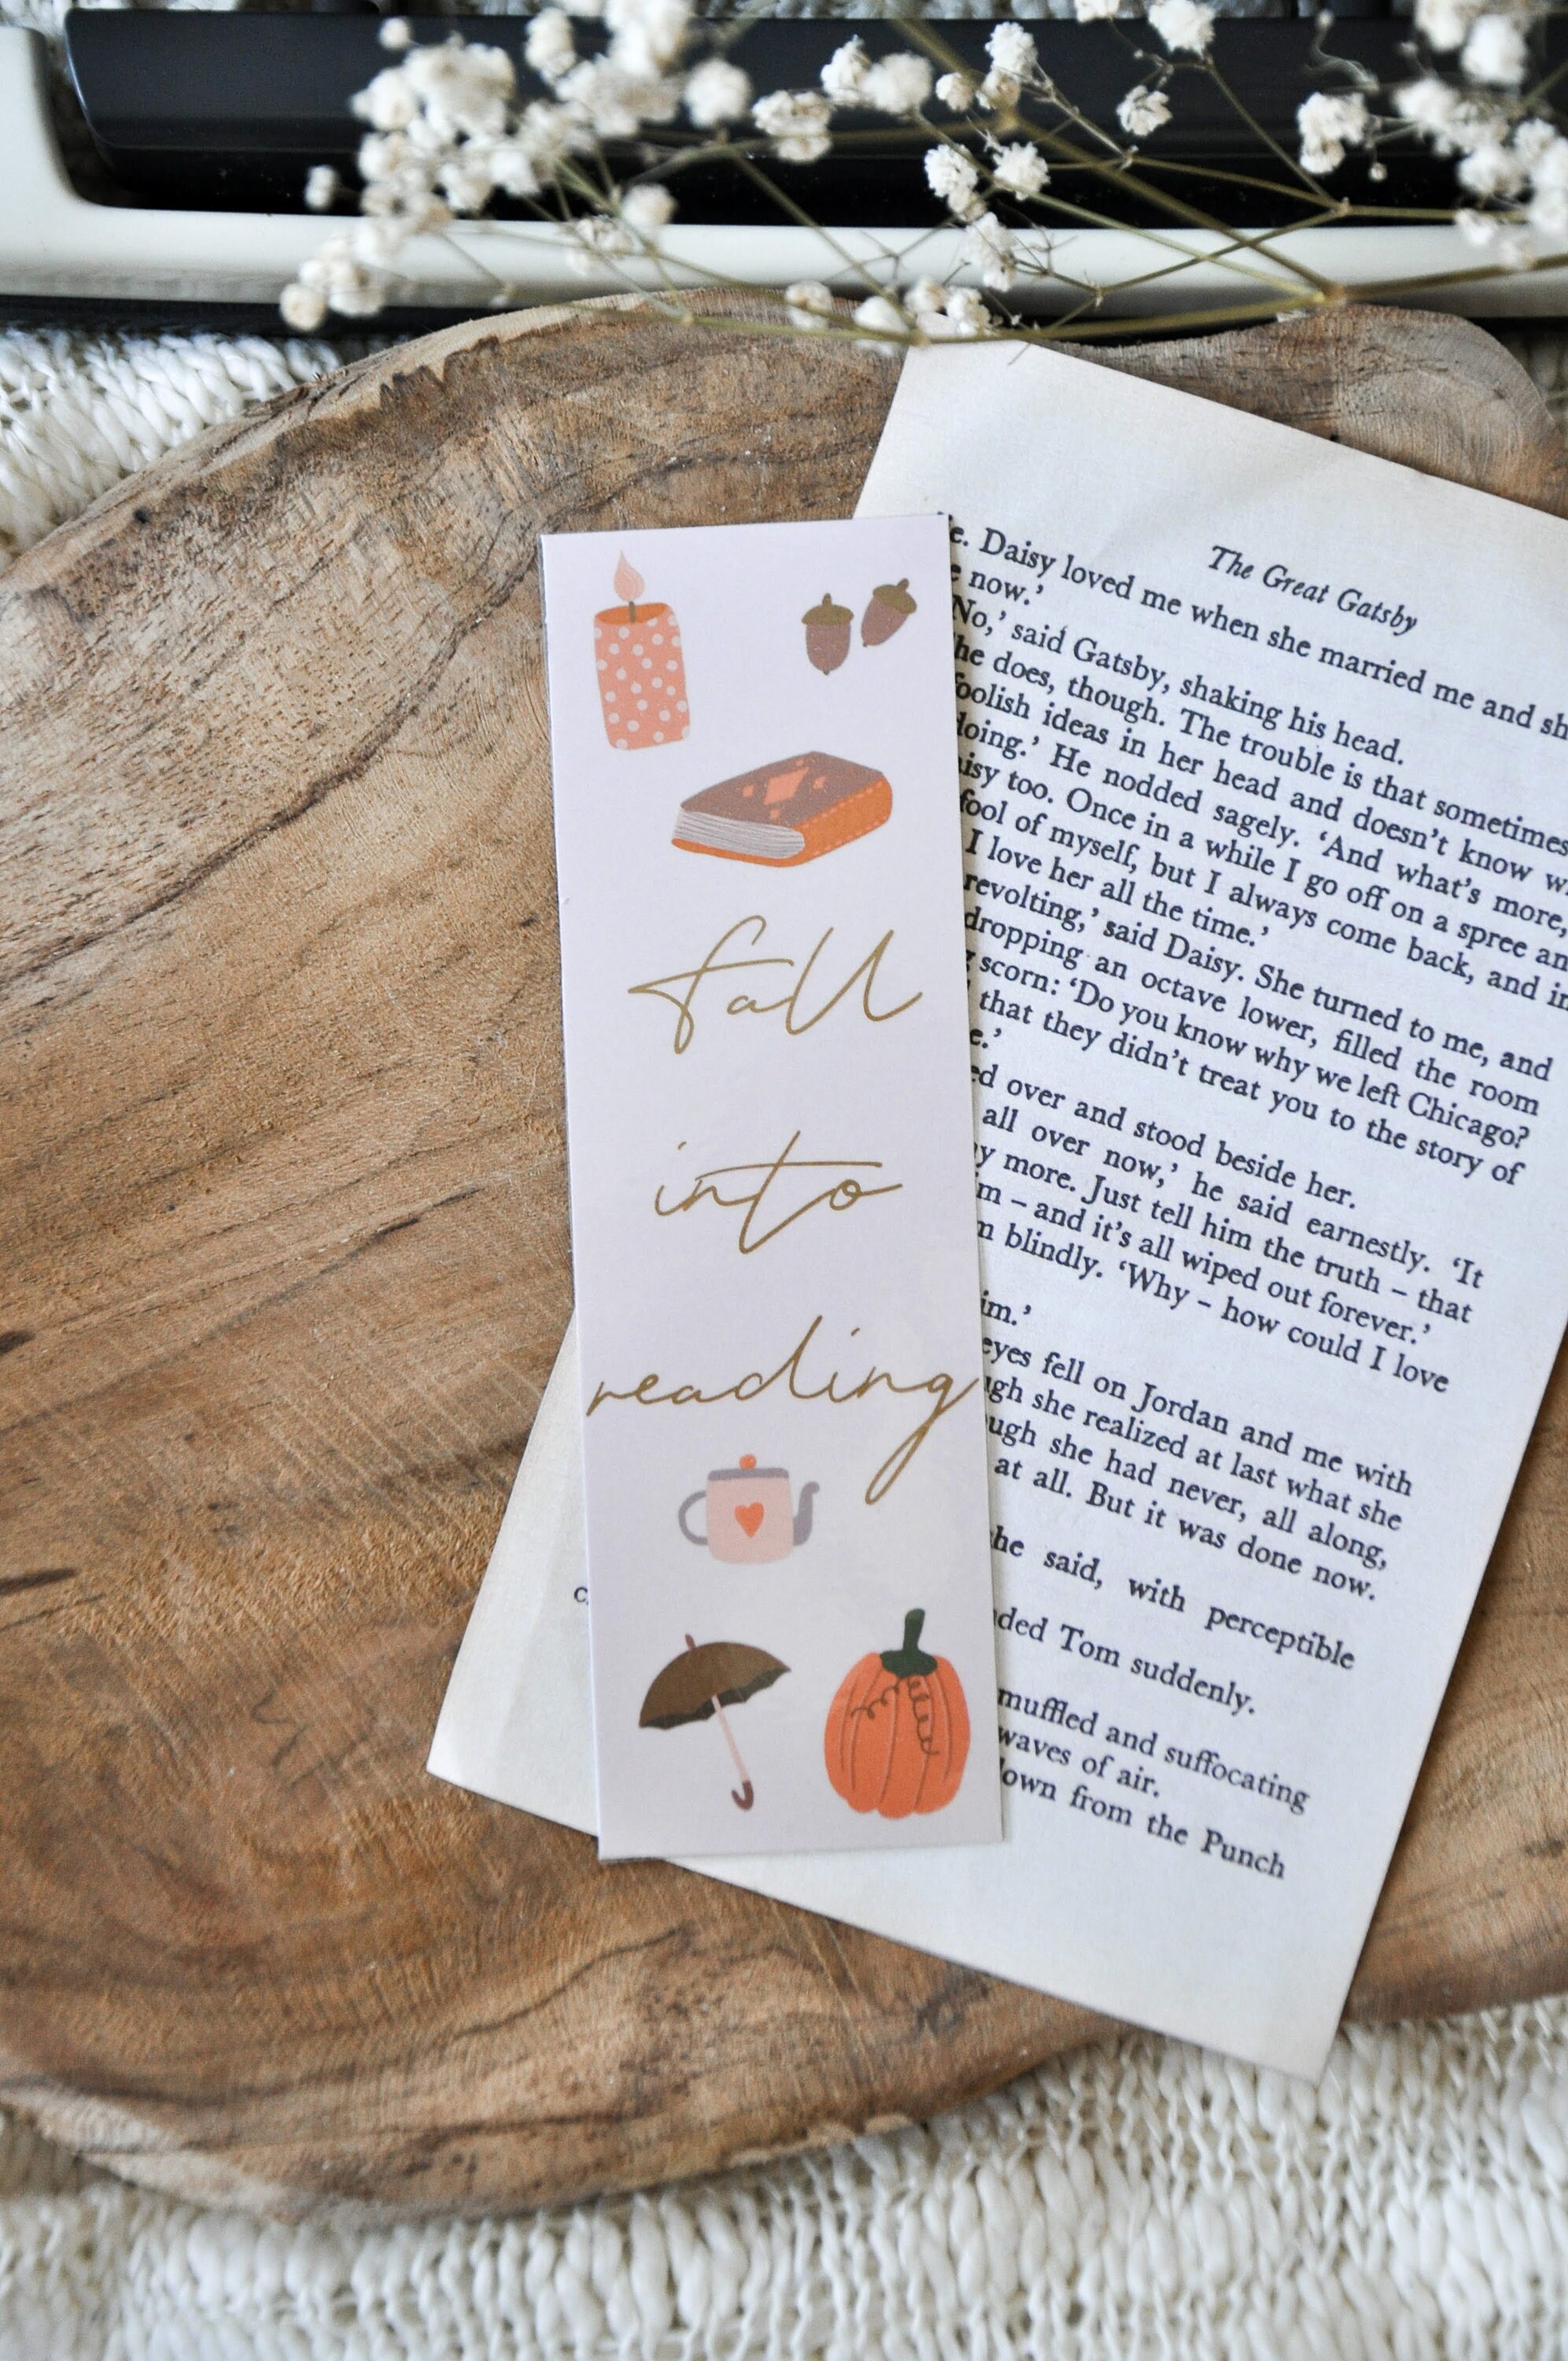 fall
into
reading
The Great Gatsby
Daisy loved me when she married me and
now.'
No,' said Gatsby, shaking his head.
he does, though. The trouble is that sometimes
foolish ideas in her head and doesn't know
doing.' He nodded sagely. 'And what's more,
too. Once in a while I go off on a spree
fool of myself, but I always come back, and
I love her all the time.'
revolting,' said Daisy. She turned to me, and
dropping an octave lower, filled the room
scorn: 'Do you know why we left Chicago?
that they didn't treat you to the story of
over and stood beside her.
all over now,' he said earnestly. 'It
more. Just tell him the truth – that
– and it's all wiped out forever.'
blindly. 'Why – how could I love
eyes fell on Jordan and me with
she realized at last what she
she had never, all along,
at all. But it was done now.
he said, with perceptible
Tom suddenly.
muffled and suffocating
waves of air.
from the Punch